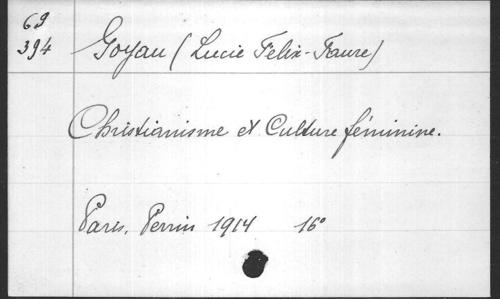 69
394
Goyau (Lucie Felix-Faure)
Christianisme et Culture féminine.
Paris, Perrin 1914 16°